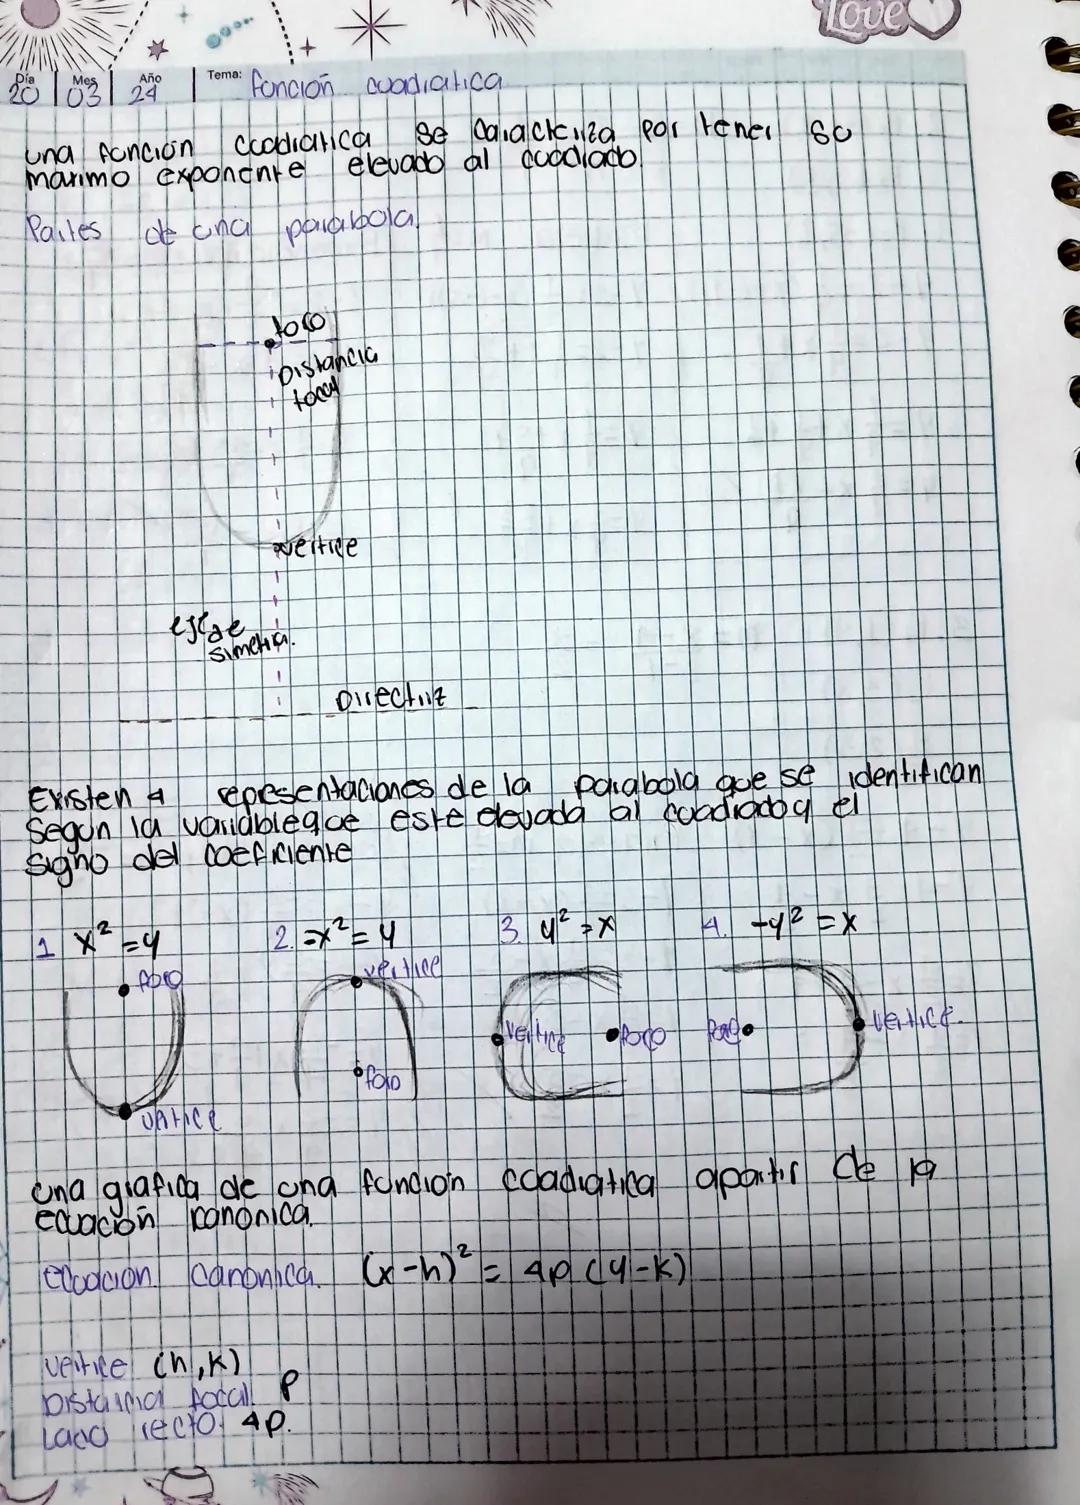 Love
Día Mes Año Tema: función cuadratica
20 03 24
una función cuadratica se caracteriza por tener su
maximo exponente elevado al cuadrado.
Partes de una parabola.
foco
Distancia
focal
vertice
eje de
simetria.
Directriz
Existen 4 representaciones de la parabola que se identifican
segun la variable que este elevada al cuadrado y el
signo del coeficiente
1 x² = y 2. -x² = y 3. y² = x 4. -y² = x
foco vertice
vertice foco foco vertice.
foco
vertice
una grafica de una función cuadratica apartir de la
ecuación canonica.
ecuacion canonica. (x-h)² = 4p (y-k)
vertice (h,k)
Distancia focal p
Lado recto 4p.